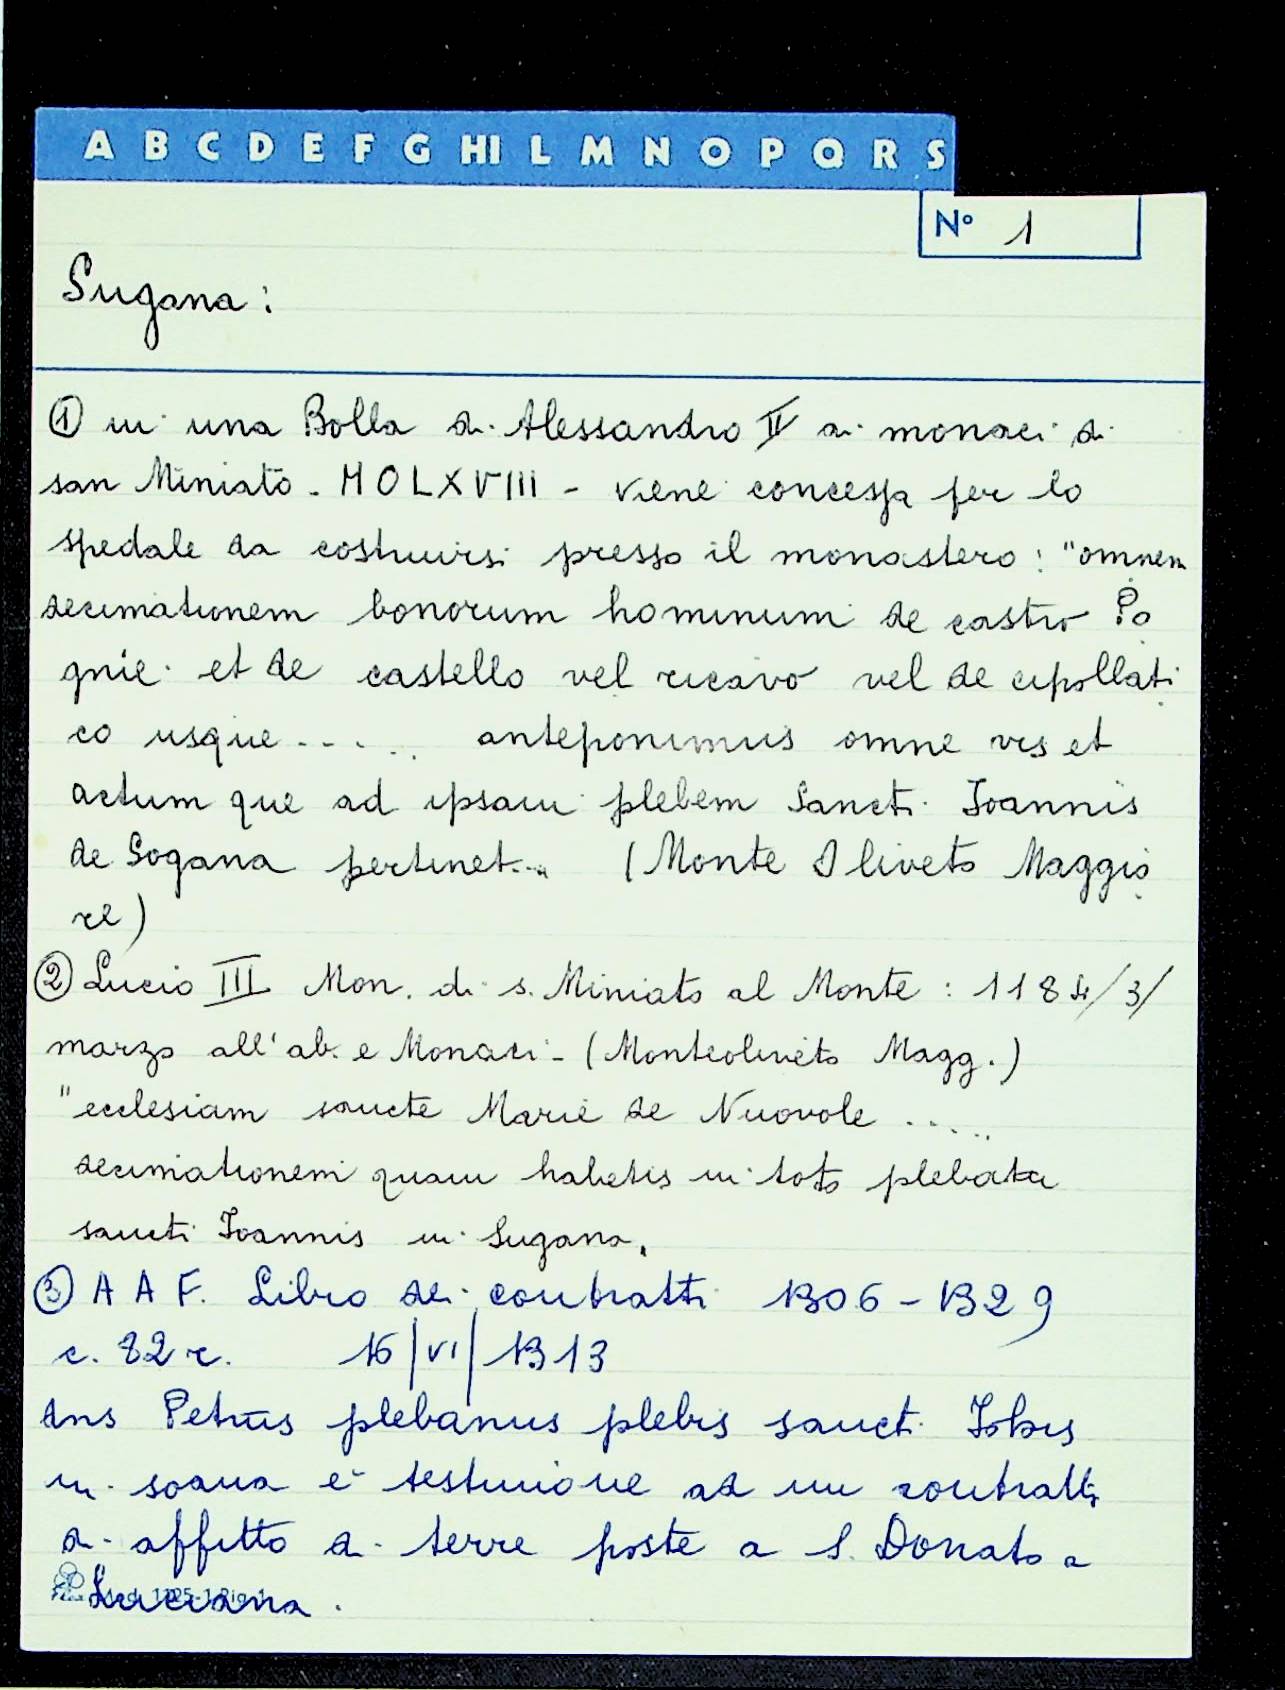 A B C D E F G HI L M N O P Q R S
N° 1
Sugana:
① in una Bolla di Alessandro II ai monaci di
san Miniato - MOLXVIII - viene concessa per lo
spedale da costruirsi presso il monastero: "omnem
decimationem bonorum hominum de castro Po
gnie et de castello vel ricavo vel de cipollati
co usque ..... anteponimus omne ves et
actum que ad ipsam plebem Sancti Ioannis
de Sogana pertinet... (Monte Oliveto Maggio
re)
② Lucio III Mon. di s. Miniato al Monte: 1184/3/
marzo all'ab. e Monaci - (Monteoliveto Magg.)
"ecclesiam sancte Marie de Nuovole .....
decimationem quam habetis in toto plebatu
sancti Ioannis in Sugana.
③ A A F. Libro dei contratti 1306-1329
c. 82 r. 16/VI/1313
dns Petrus plebanus plebis sancti Iohis
in soana è testimone ad un contratto
di affitto di terre poste a S. Donato a
Luciana.